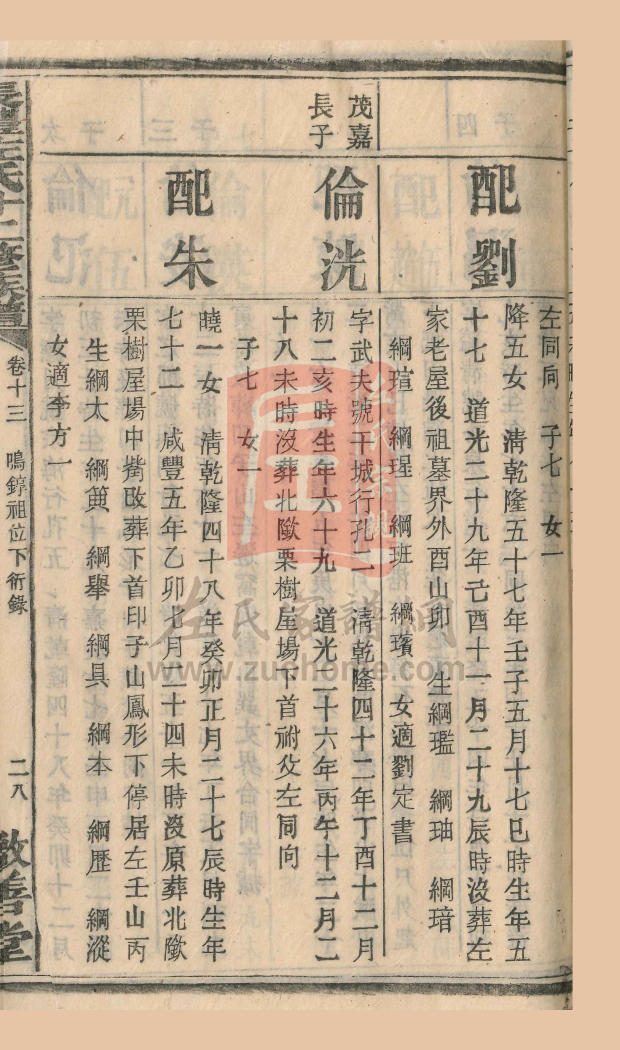 左同向 子七 女一
配劉
降五女 清乾隆五十七年壬子五月十七巳時生年五
十七 道光二十九年己酉十一月二十九辰時沒葬左
家老屋後祖墓界外酉山卯 生綱瓛 綱䄂 綱琣
綱瑄 綱瑆 綱班 綱璸 女適劉定書
茂嘉長子
倫洸
字武夫號干城行孔二 清乾隆四十二年丁酉十二月
初二亥時生年六十九 道光二十六年丙午十二月二
十八未時沒葬北歐栗樹屋場下首祔父左同向
子七 女一
配朱
曉一女 清乾隆四十八年癸卯正月二十七辰時生年
七十二 咸豐五年乙卯七月二十四未時沒原葬北歐
栗樹屋場中嘴改葬下首印子山鳳形下停居左壬山丙
生綱太 綱筼 綱舉 綱具 綱本 綱歷 綱漎
女適李方一
長醴左氏十二修族譜
卷十三 鳴錞祖位下衍錄
二八
敬善堂
左氏家譜網
www.zuohome.com